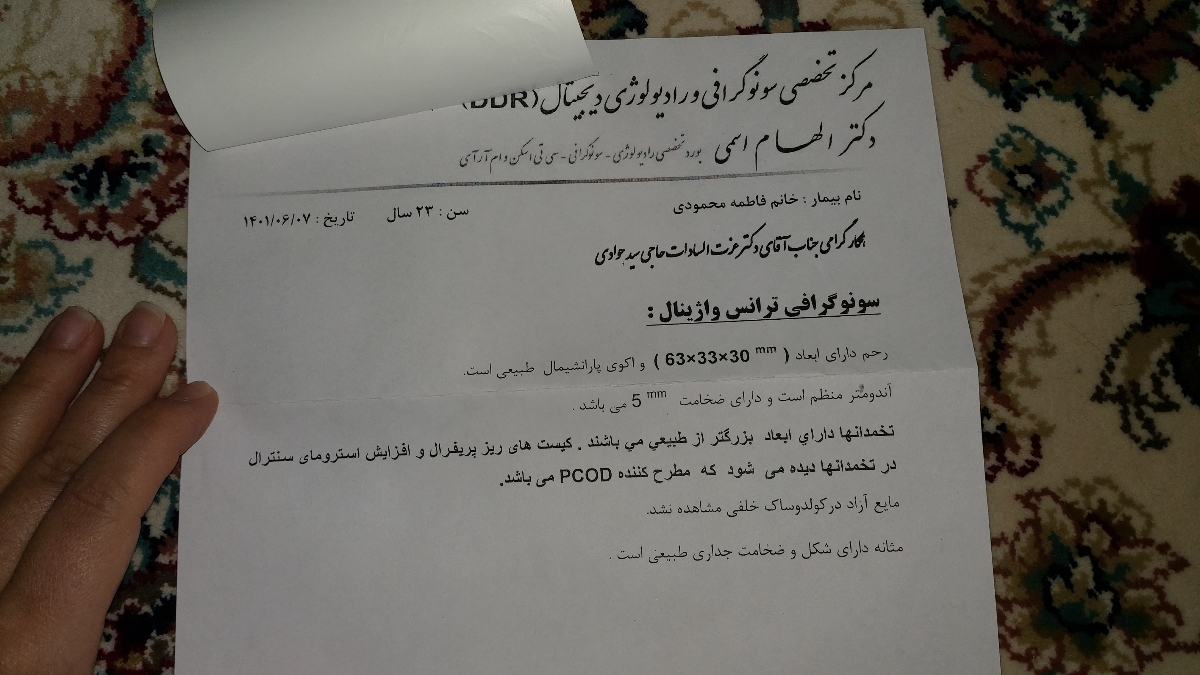 مرکز تخصصی سونوگرافی و رادیولوژی دیجیتال (DDR
دکتر الهام اسمی بورد تخصصی رادیولوژی - سونوگرافی - سی تی اسکن و ام آر آی
نام بیمار : خانم فاطمه محمودی سن : ۲۳ سال تاریخ : ۱۴۰۱/۰۶/۰۷
همکار گرامی جناب آقای دکتر عزت السادات حاجی سید جوادی
سونوگرافی ترانس واژینال :
رحم دارای ابعاد ( 63×33×30 mm ) و اکوی پارانشیمال طبیعی است.
آندومتر منظم است و دارای ضخامت 5 mm می باشد .
تخمدانها داراي ابعاد بزرگتر از طبيعي مي باشند . کیست های ریز پریفرال و افزایش استرومای سنترال
در تخمدانها دیده می شود که مطرح کننده PCOD می باشد.
مایع آزاد در کولدوساک خلفی مشاهده نشد.
مثانه دارای شکل و ضخامت جداری طبیعی است .